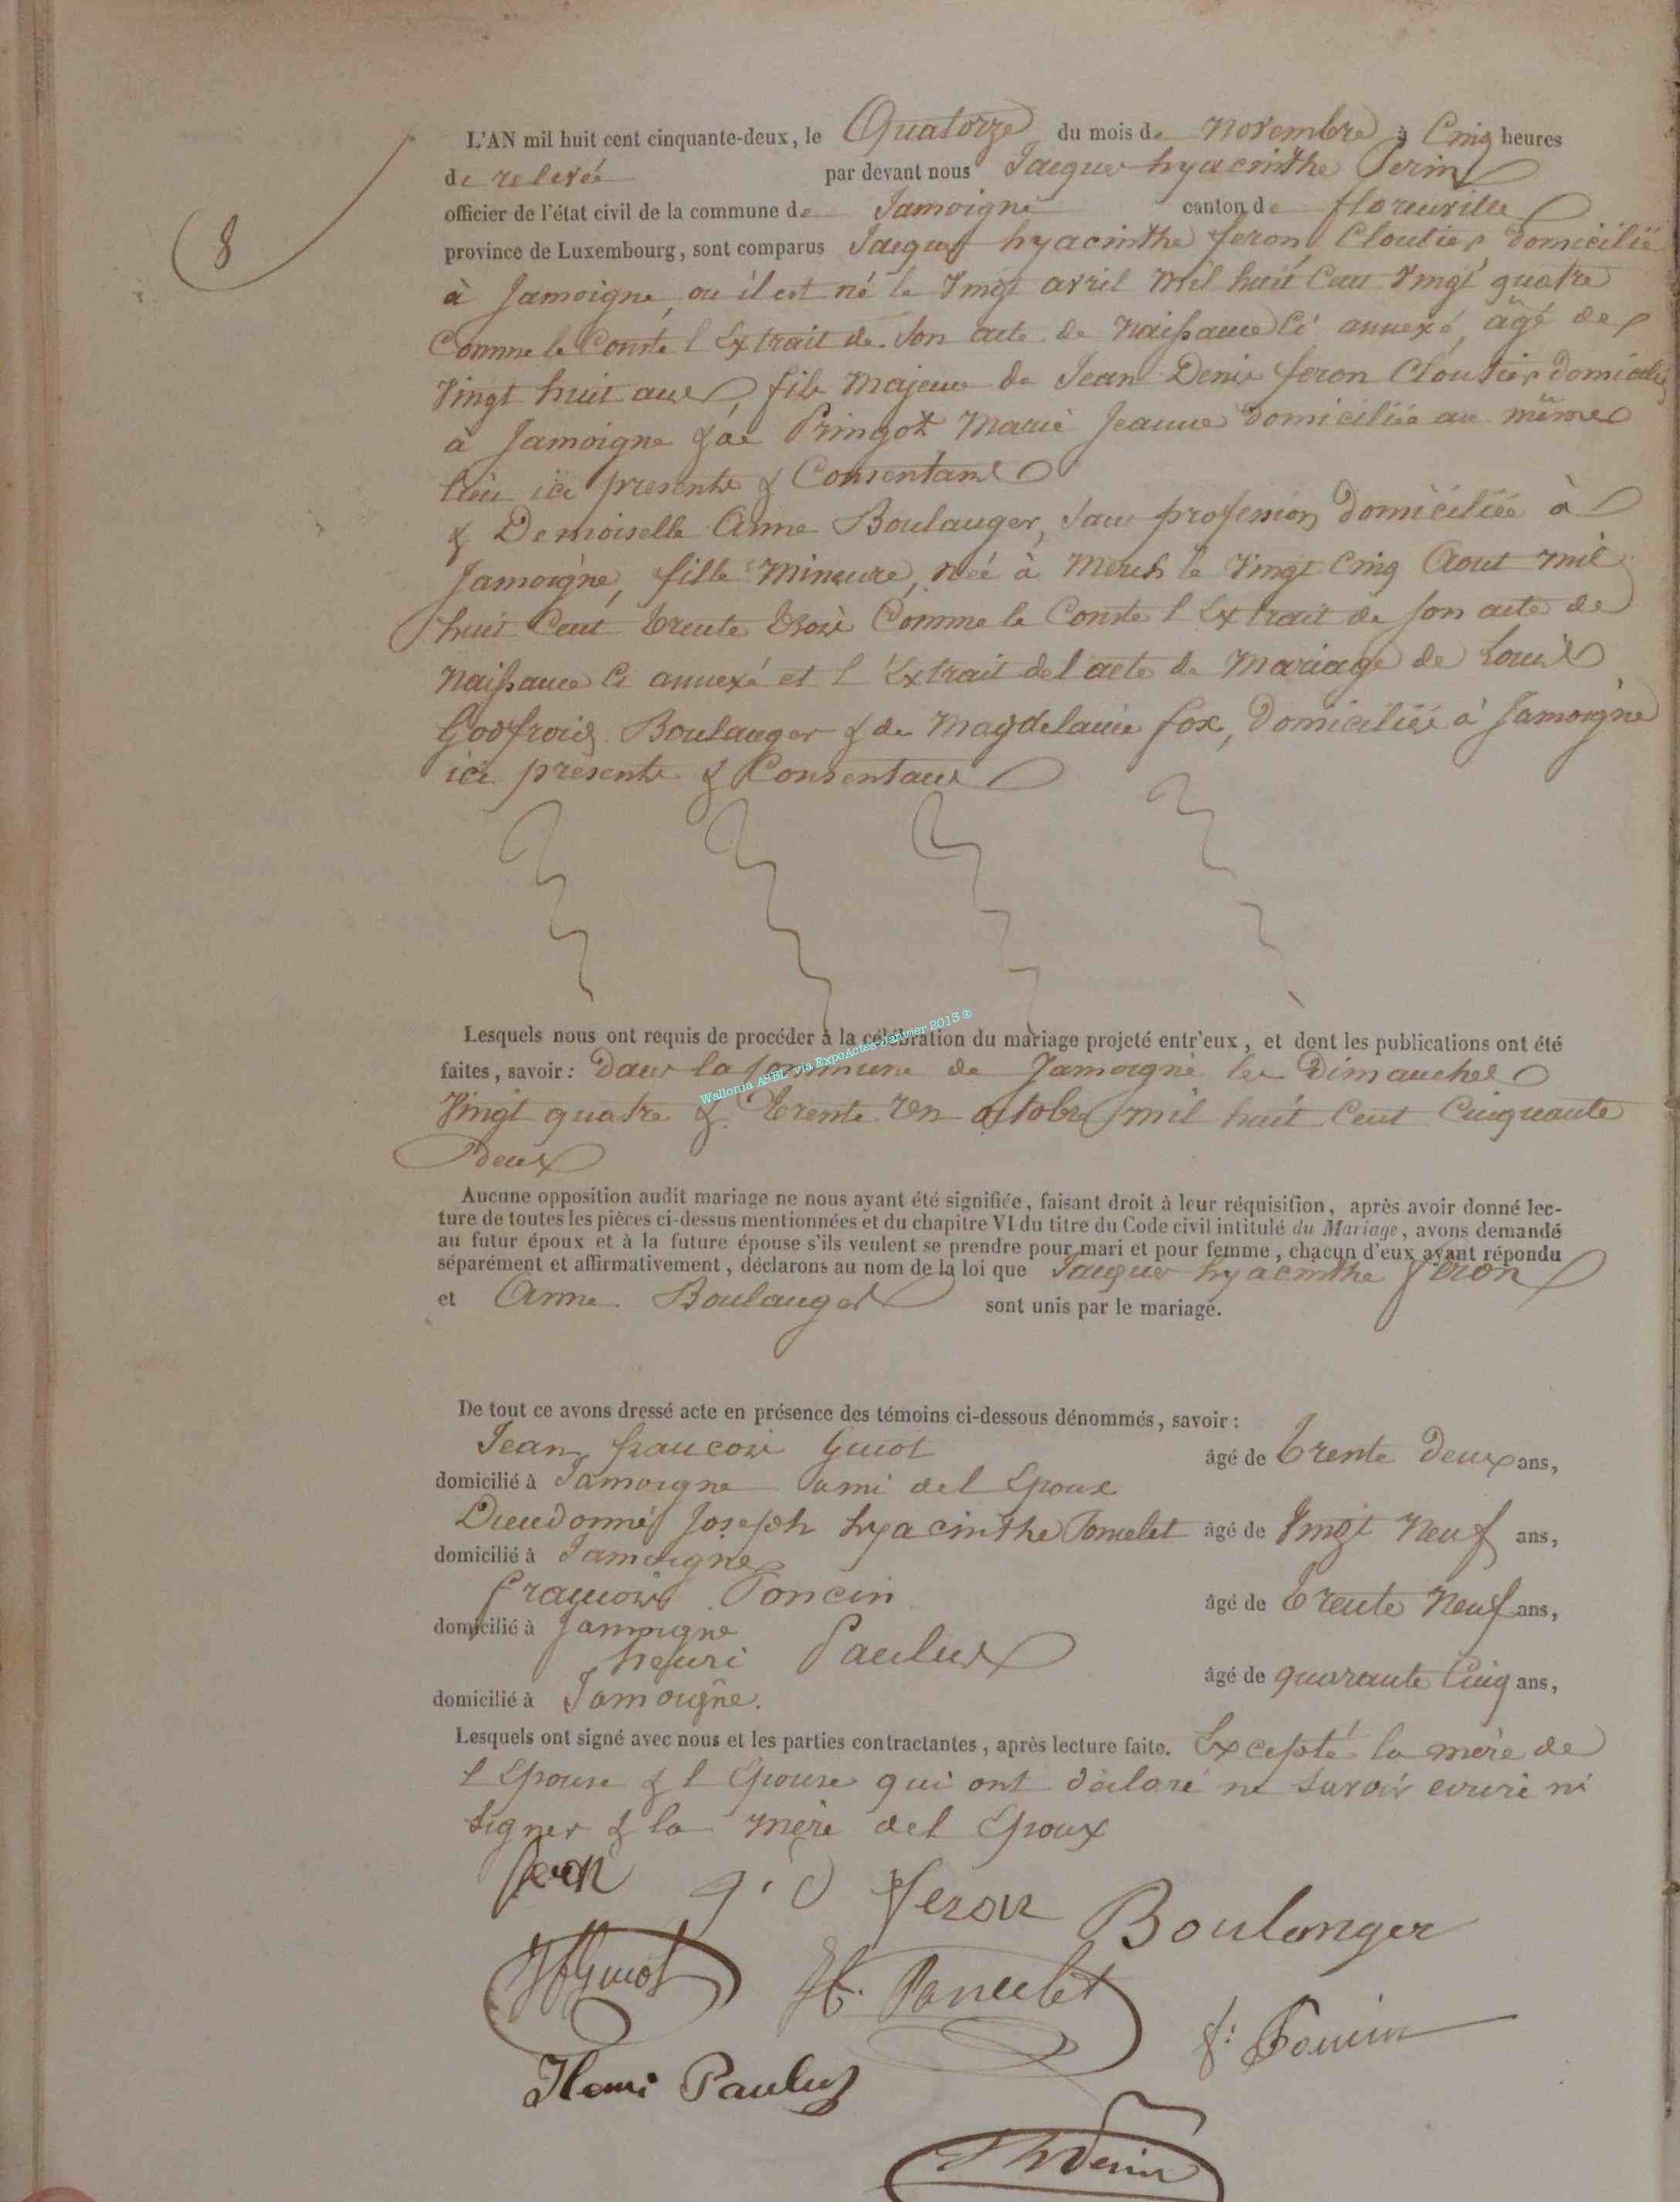 8
L'AN mil huit cent cinquante-deux, le Quatorze du mois de novembre à Cinq heures
de relevée par devant nous Jacques hyacinthe Perin
officier de l'état civil de la commune de Jamoigne canton de florenville
province de Luxembourg, sont comparus Jacques hyacinthe feron, Cloutier domicilié
à Jamoigne, ou il est né le Vingt avril mil huit Cent Vingt quatre
Comme le Conste l Extrait de Son acte de Naissance Ci annexé, âgé de
Vingt huit ans, fils Majeur de Jean Denis feron Cloutier domicilié
à Jamoigne & de Pringot Marie Jeanne domiciliée au même
lieu ici presents & Consentans
& Demoiselle Anne Boulanger, Sans profession domiciliée à
Jamoigne, fille Mineure, née à le Vingt Cinq Aout mil
huit Cent trente trois Comme le Conste l Extrait de Son acte de
Naissance Ci annexé et l Extrait de l acte de Mariage de Louis
Godfroid Boulanger & de Magdelaine fox, Domiciliés à Jamoigne
ici presents & Consentans
Lesquels nous ont requis de procéder à la célébration du mariage projeté entr'eux, et dont les publications ont été
faites, savoir: Dans la Commune de Jamoigne les Dimanches
Wallonia ASBL via ExpoActes Janvier 2013 ®
Vingt quatre & trente Un octobre mil huit Cent Cinquante
Deux
Aucune opposition audit mariage ne nous ayant été signifiée, faisant droit à leur réquisition, après avoir donné lec-
ture de toutes les pièces ci-dessus mentionnées et du chapitre VI du titre du Code civil intitulé du Mariage, avons demandé
au futur époux et à la future épouse s'ils veulent se prendre pour mari et pour femme, chacun d'eux ayant répondu
séparément et affirmativement, déclarons au nom de la loi que Jacques hyacinthe feron
et Anne Boulanger sont unis par le mariage.
De tout ce avons dressé acte en présence des témoins ci-dessous dénommés, savoir:
Jean francois Guiot âgé de trente Deux ans,
domicilié à Jamoigne ami de l Epoux
Dieudonné Joseph hyacinthe Poncelet âgé de Vingt Neuf ans,
domicilié à Jamoigne
françois Poncin âgé de trente Neuf ans,
domicilié à Jamoigne
henri Paulus âgé de quarante Cinq ans,
domicilié à Jamoigne.
Lesquels ont signé avec nous et les parties contractantes, après lecture faite. Excepté la mère de
l Epouse & l Epouse qui ont déclaré ne savoir ecrire ni
signer & la mère de l Epoux
feron J. D feron Boulanger
JfGuiot H. Poncelet
f: Poncin
Henri Paulus
JhPerin